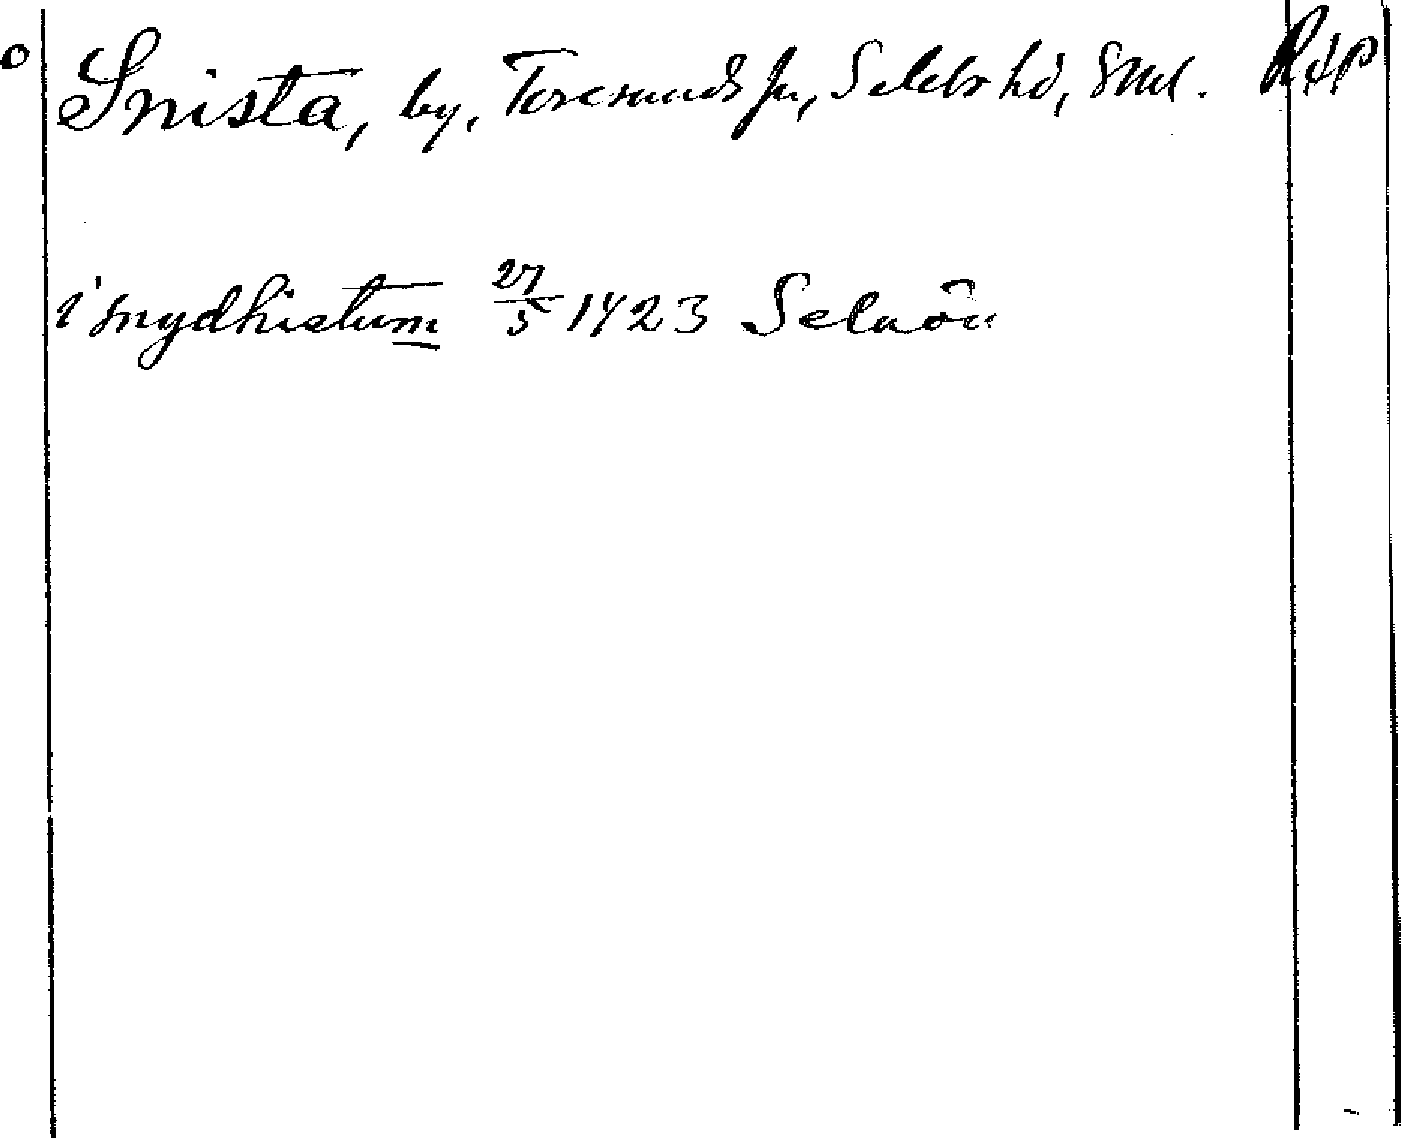 o Snista, by, Toresunds sn, Selebo hd, Sml. RAP
i snydhistum 27/5 1423 Selaön